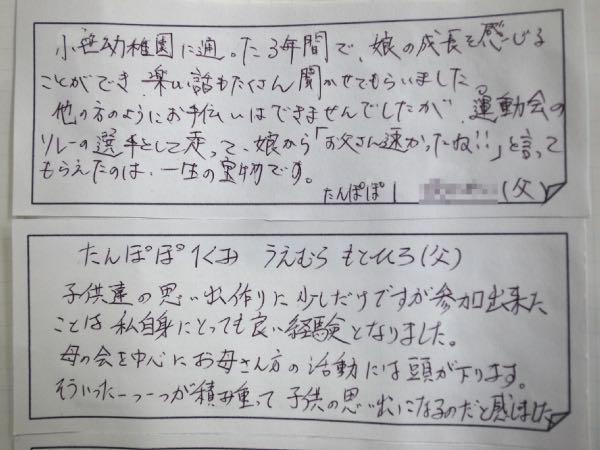 小笹幼稚園に通った3年間で、娘の成長を感じる
ことができ、楽しい話もたくさん聞かせてもらいました。
他の方のようにお手伝いはできませんでしたが、運動会の
リレーの選手として走って、娘から「お父さん速かったね!!」と言って
もらえたのは、一生の宝物です。
たんぽぽ1 (父)
たんぽぽ1くみ うえむら もとひろ(父)
子供達の思い出作りに少しだけですが参加出来た
ことは私自身にとっても良い経験となりました。
母の会を中心にお母さん方の活動には頭が下ります。
そういった一つ一つが積み重って子供の思い出になるのだと感じました。